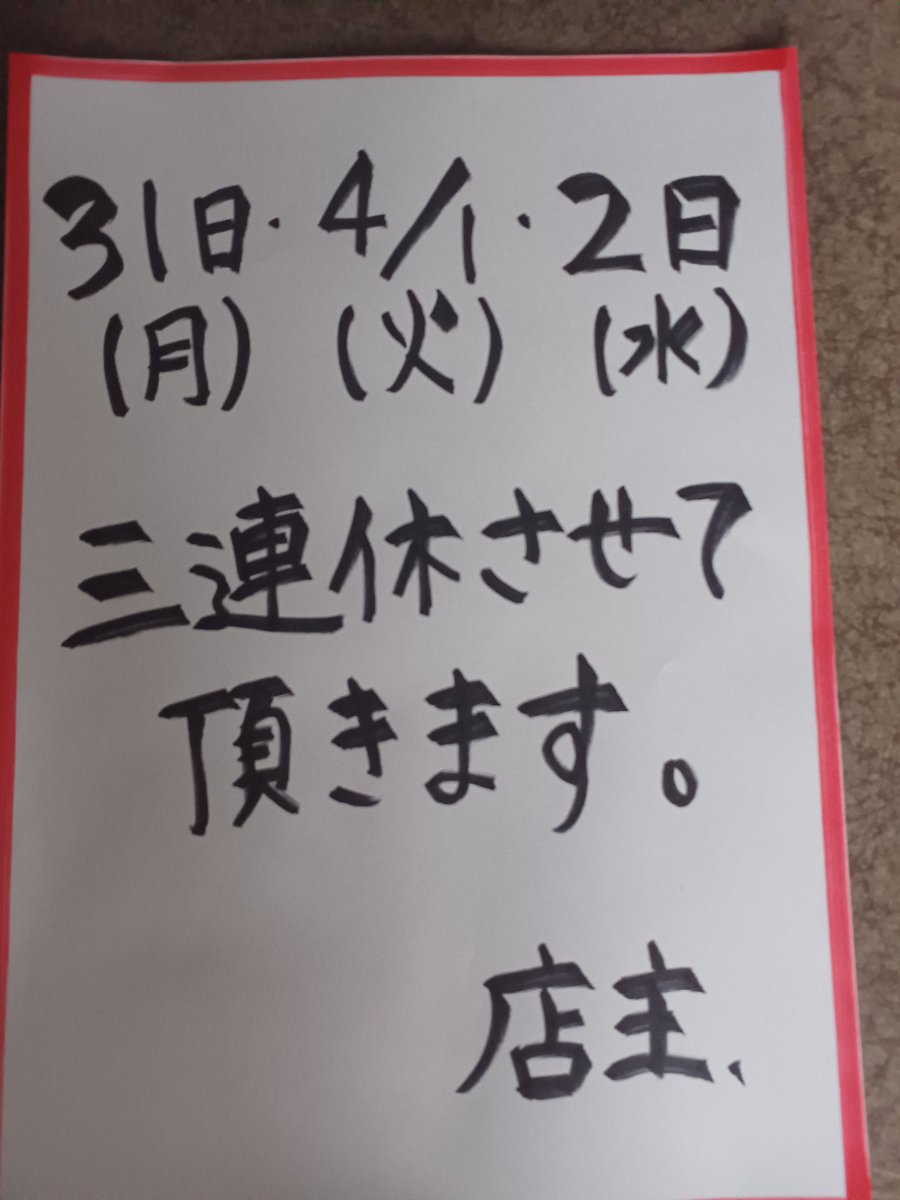 31日・4/1・2日
(月) (火) (水)
三連休させて
頂きます。
店主、